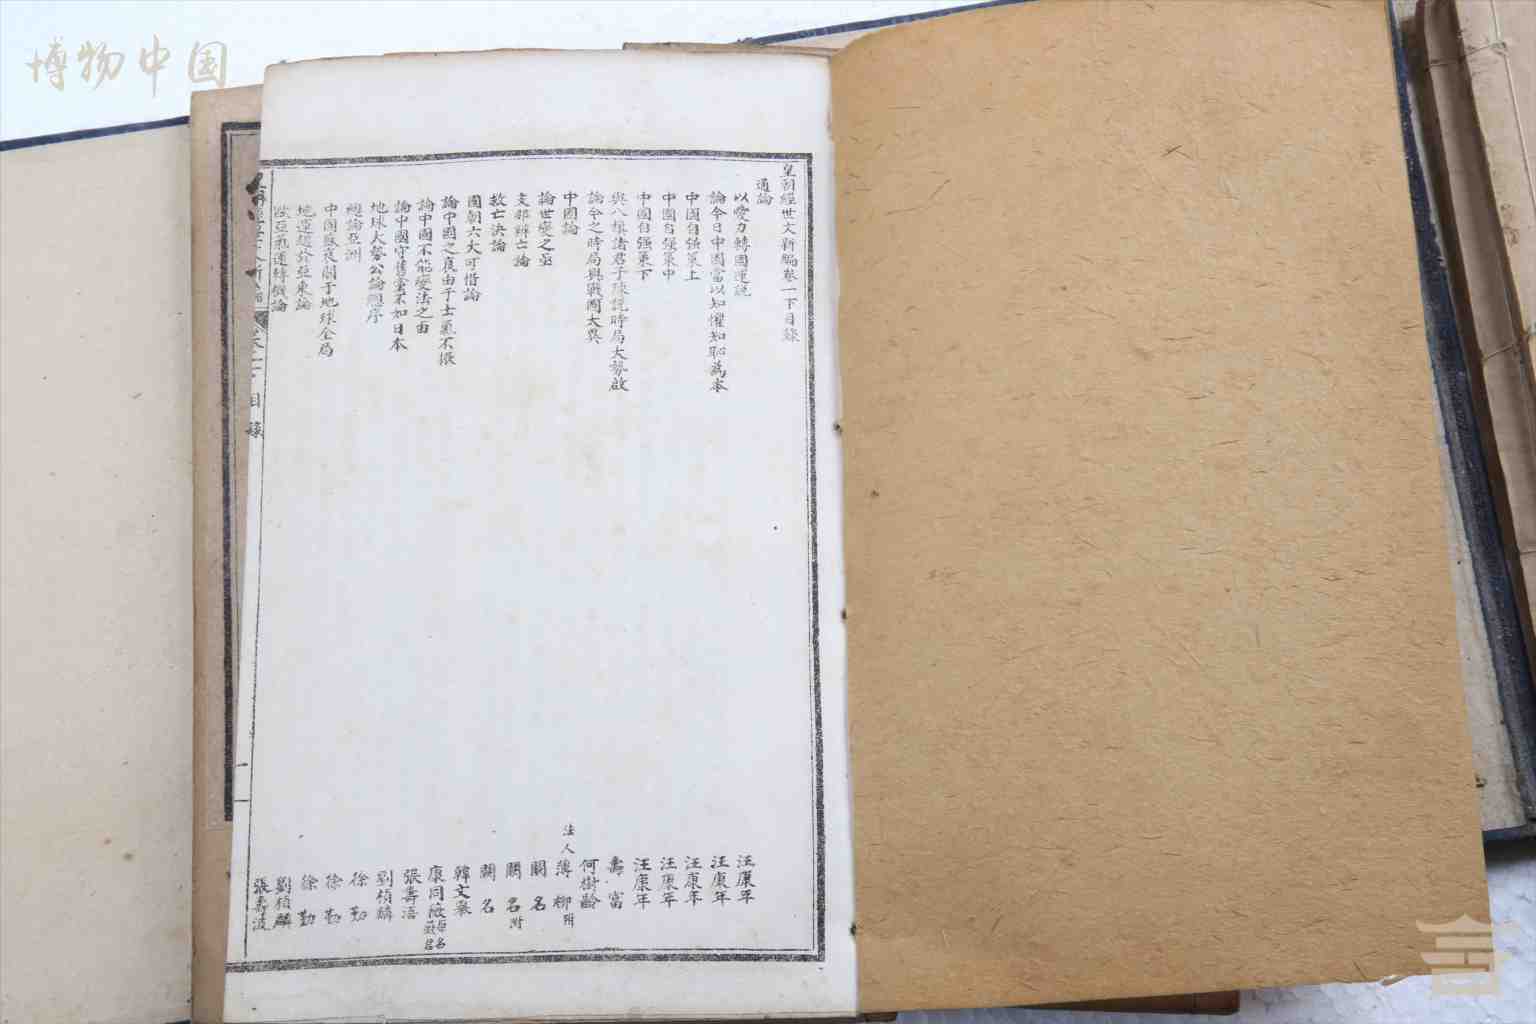 博物中国
皇朝經世文新編卷一下目錄
通論
以愛力轉國運說 汪康年
論今日中國當以知懼知恥爲本 汪康年
中國自强策上 汪康年
中國自强策中 汪康年
中國自强策下 汪康年
與八旗諸君子陳說時局大勢啟 壽富
論今之時局與戰國大異 何樹齡
中國論 法人薄柳附
論世變之亟 闕名
支那辨亡論 闕名附
救亡決論 闕名
國朝六大可惜論 韓文舉
論中國之衰由于士氣不振 康同薇
論中國不能變法之由 張壽浯
論中國守舊黨不如日本 劉楨麟
地球大勢公論總序 徐勤
總論亞洲 徐勤
中國盛衰關于地球全局 徐勤
地運趨於亞東論 劉楨麟
歐亞氣運轉機論 張壽波
目錄
一